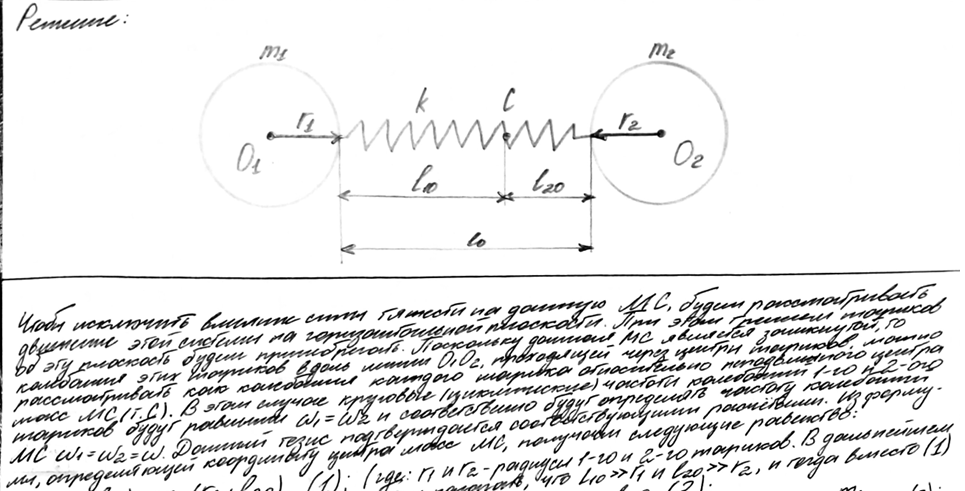 Решение:
m1 m2
k C
r1 r2
O1 O2
l10 l20
l0
Чтобы исключить влияние силы тяжести на данную МС, будем рассматривать
движение этой системы на горизонтальной плоскости. При этом трением шариков
об эту плоскость будем пренебрегать. Поскольку данная МС является замкнутой, то
колебания этих шариков вдоль линии O1O2, проходящей через центры шариков, можно
рассматривать как колебания каждого шарика относительно неподвижного центра
масс МС (т. C). В этом случае круговые (циклические) частоты колебаний 1-го и 2-ого
шариков будут равными ω1=ω2 и соответственно будут определять частоту колебаний
МС ω1=ω2=ω. Данный тезис подтверждается соответствующими расчётами. Из форму-
лы, определяющей координату центра масс МС, получаем следующее равенство:
(1); (где: r1 и r2 - радиусы 1-го и 2-го шариков. В дальнейшем
полагать, что l10 >> r1 и l20 >> r2, и тогда вместо (1)
(2);